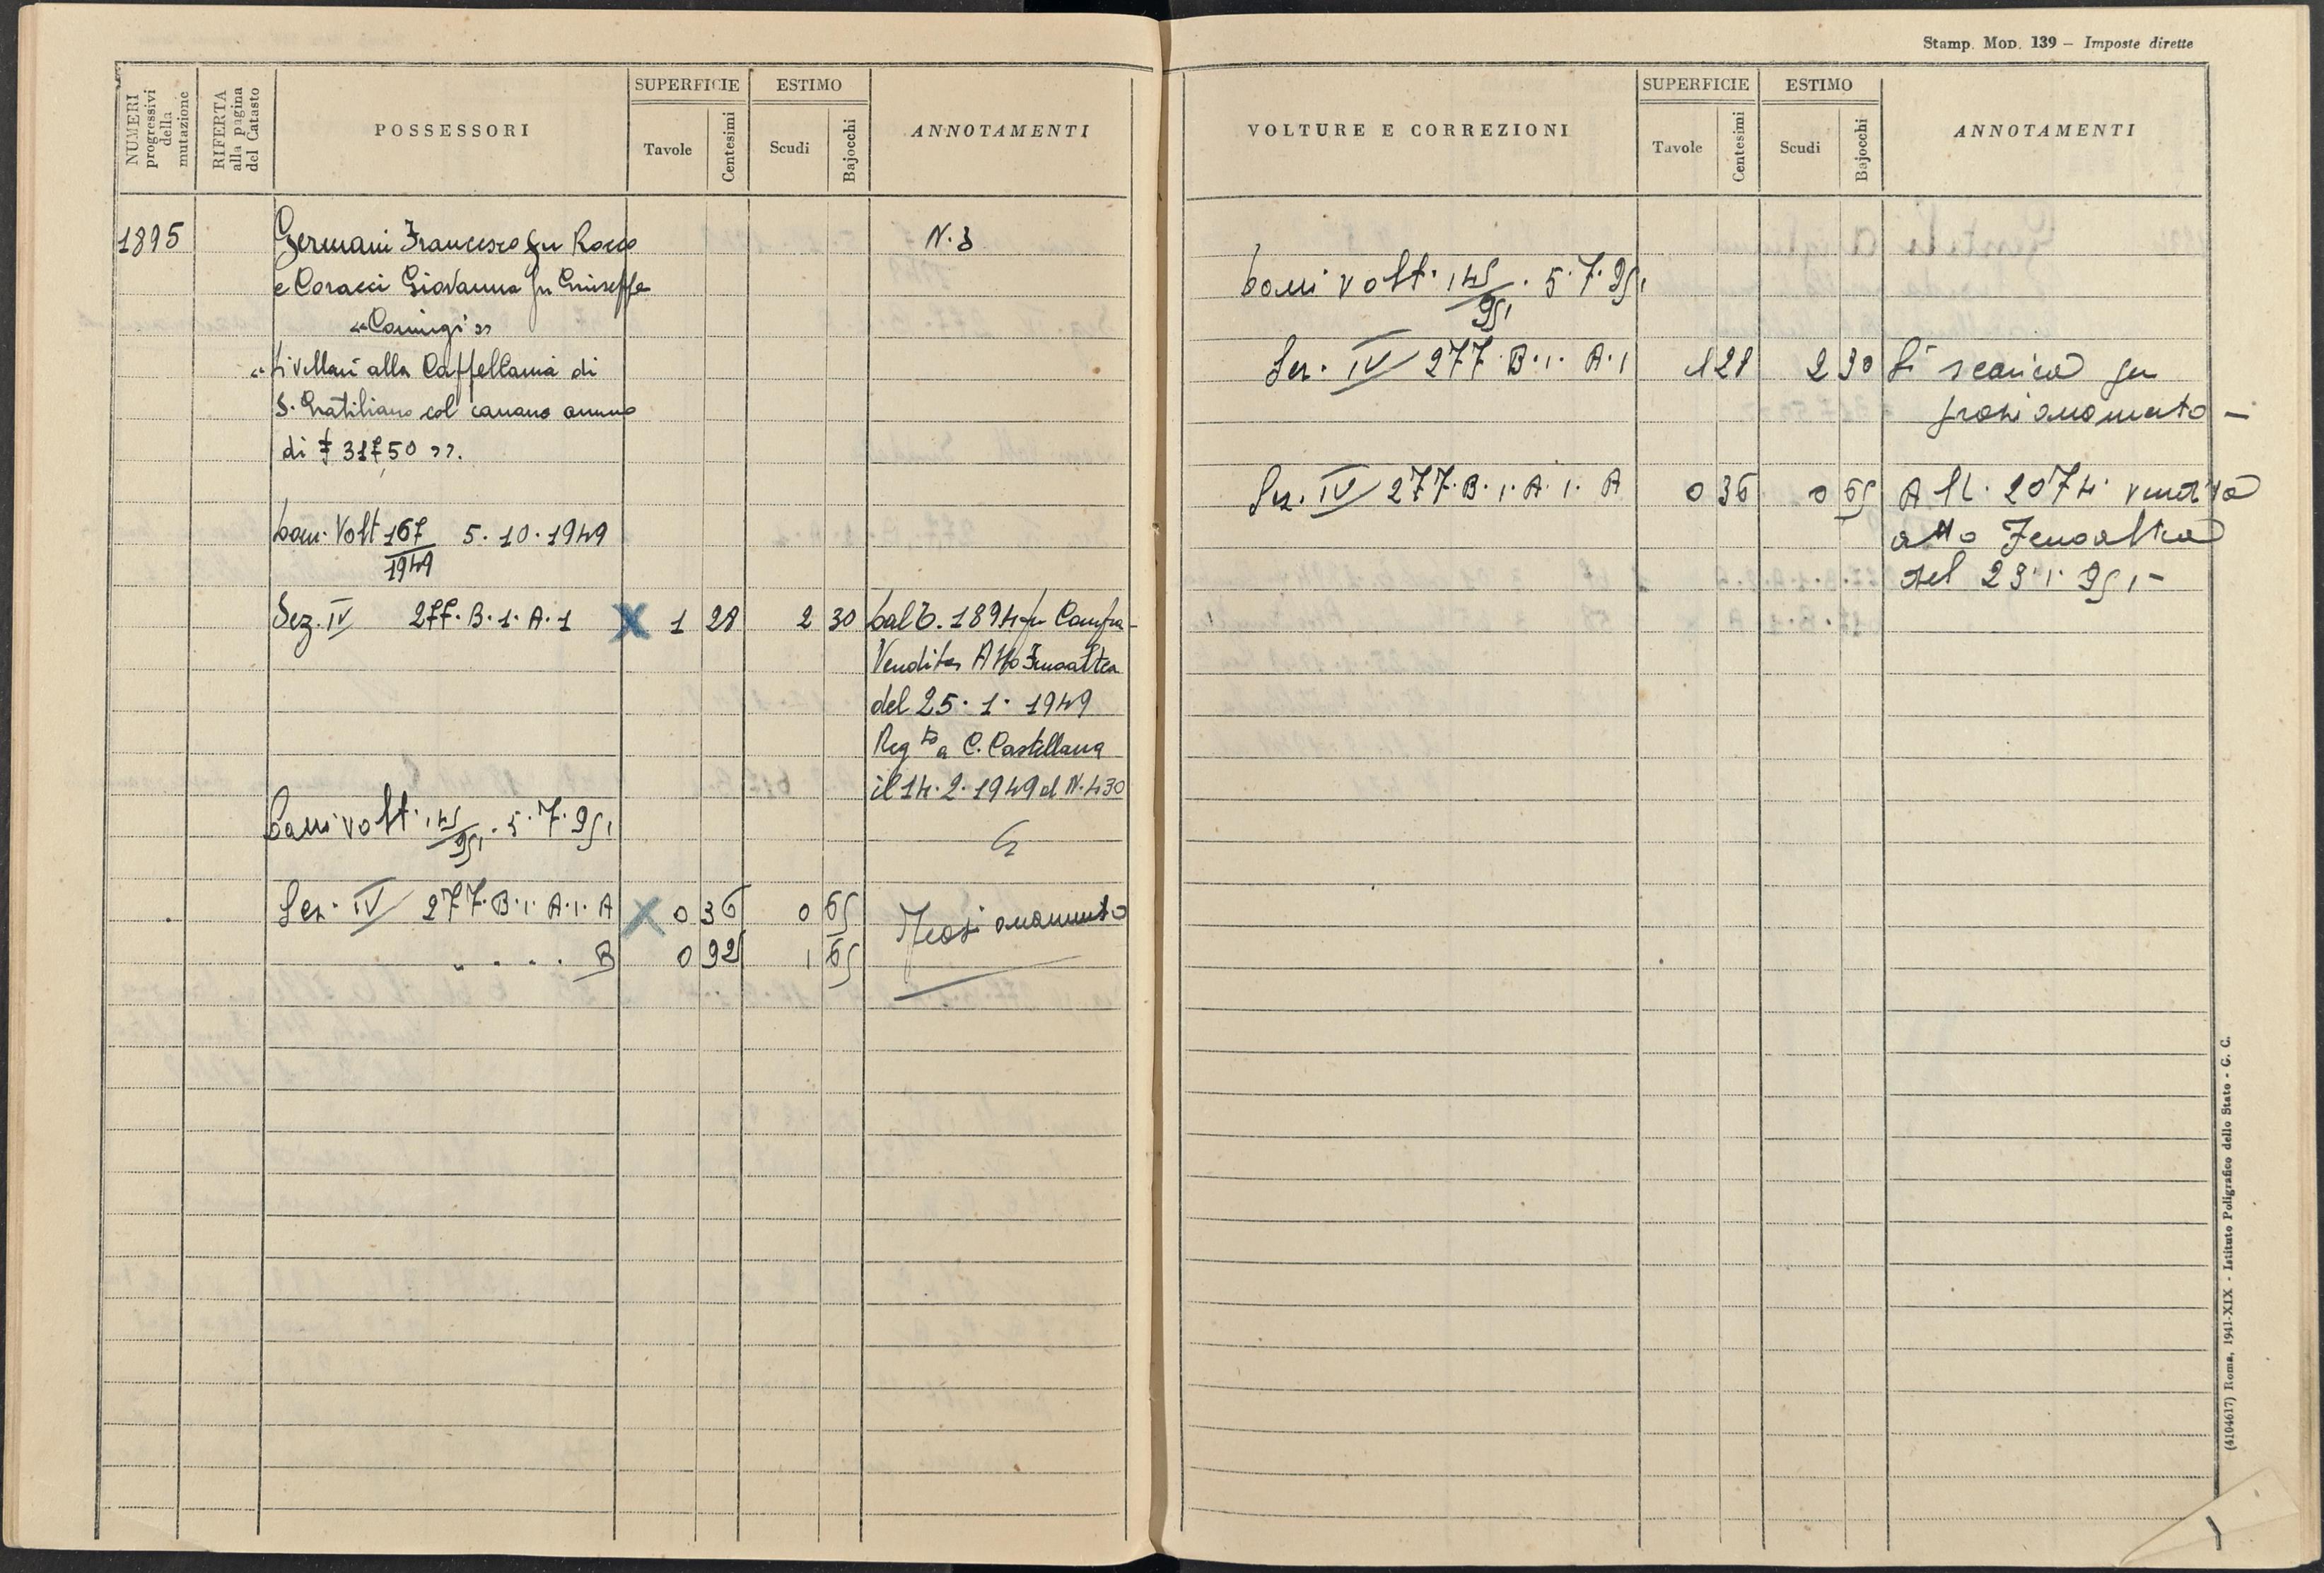 Stamp. Mod. 139 – Imposte dirette
NUMERI progressivi della mutazione
RIFERTA alla pagina del Catasto
POSSESSORI
SUPERFICIE
Tavole
Centesimi
ESTIMO
Scudi
Bajocchi
ANNOTAMENTI
1895
Germani Francesco fu Rocco
N. 3
e Coracci Giovanna fu Giuseppe
«Coniugi»
«Livellari alla Cappellania di
S. Gratiliano col canone annuo
di £ 317,50».
Volt 167/1949 5.10.1949
Sez. IV 277.B.1.A.1 X 1 28 2 30
Dal C. 1894 per Compra-
Vendita Atto Fenoaltea
del 25.1.1949
Reg.to a C. Castellana
il 14.2.1949 al N. 430
volt. 145/951. 5.7.951
Sez. IV 277.B.1.A.1.A X 0 36 0 65
Frazionamento
" . . . B 0 92 1 65
VOLTURE E CORREZIONI
SUPERFICIE
Tavole
Centesimi
ESTIMO
Scudi
Bajocchi
ANNOTAMENTI
volt. 145/951. 5.7.951
Sez. IV 277.B.1.A.1 1 28 2 30 Si scarica per
frazionamento –
Sez. IV 277.B.1.A.1.A 0 36 0 65 2074 vendita
atto Fenoaltea
del 23.1.951–
(4104617) Roma, 1941-XIX - Istituto Poligrafico dello Stato - G. C.